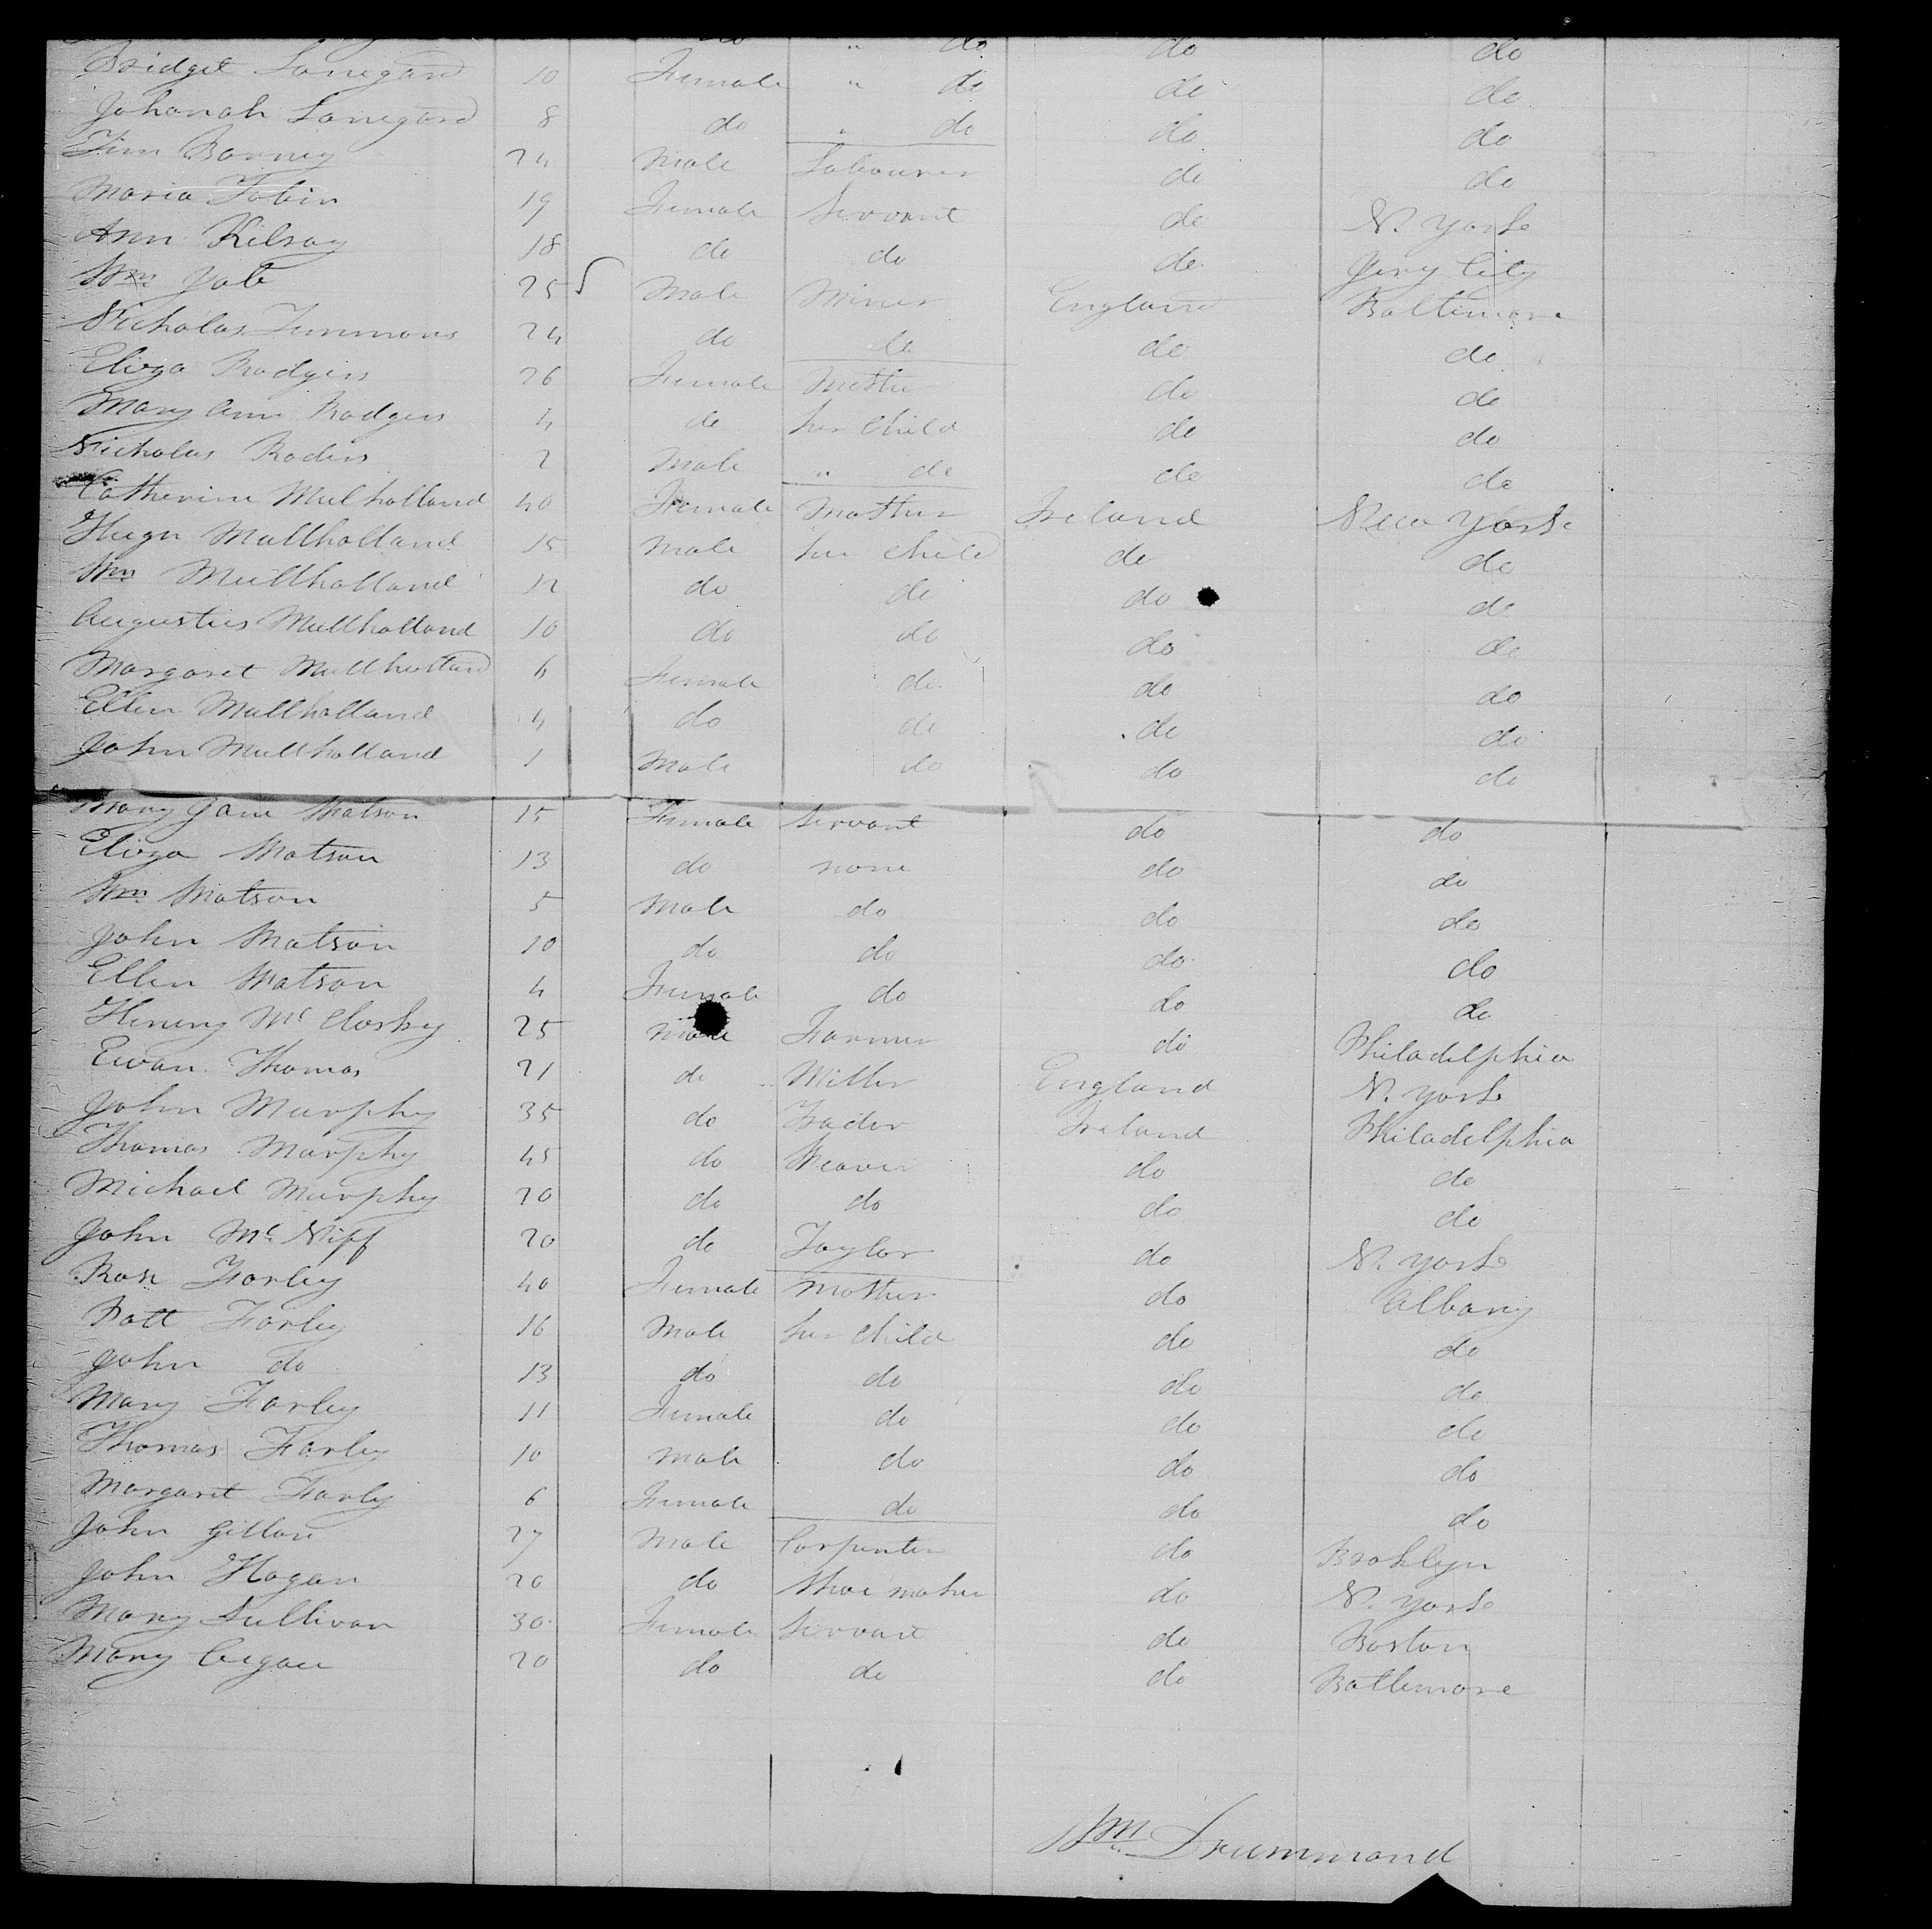 do " do do do
Bridget Lonegard 10 Female " do do do
Johanah Lonegard 8 do " do do do
Tim Barney 24 Male Labourer do do
Maria Tobin 19 Female Servant do N. York
Ann Kilray 18 do do do Jersy City
Wm 25 Male Miner England Baltimore
Nicholas Timmons 24 do do do do
Eliza Rodgers 26 Female Mother do do
Mary Ann Rodgers 4 do her Child do do
Nicholas Roders 2 Male " do do do
Catherine Mulholland 40 Female Mother Ireland New York
Hugh Mullholland 15 Male her Child do do
Wm Mullholland 12 do do do do
Augustus Mullholland 10 do do do do
Margaret Mullholland 6 Female do do do
Ellen Mullholland 4 do do do do
John Mullholland 1 Male do do do
Mary Jane Watson 15 Female Servant do do
Eliza Watson 13 do none do do
Wm Watson 5 Male do do do
John Watson 10 do do do do
Ellen Watson 4 Female do do do
Henery Mc Closky 25 Male Farmer do Philadelphia
Ewan Thomas 21 do Miller England N. York
John Murphy 35 do Trader Ireland Philadelphia
Thomas Murphy 45 do Weaver do do
Michael Murphy 20 do do do do
John Mc Niff 20 do Taylor do N. York
Rose Farley 40 Female Mother do Albany
Patt Farley 16 Male her Child do do
John do 13 do do do do
Mary Farley 11 Female do do do
Thomas Farley 10 Male do do do
Margaret Farly 6 Female do do do
John Gillan 27 Male Carpenter do Brohlyn
John Hagan 20 do Shoe maker do N. York
Mary Sullivan 30 Female Servant do Boston
Mary 20 do do do Baltemore
Wm Drummond